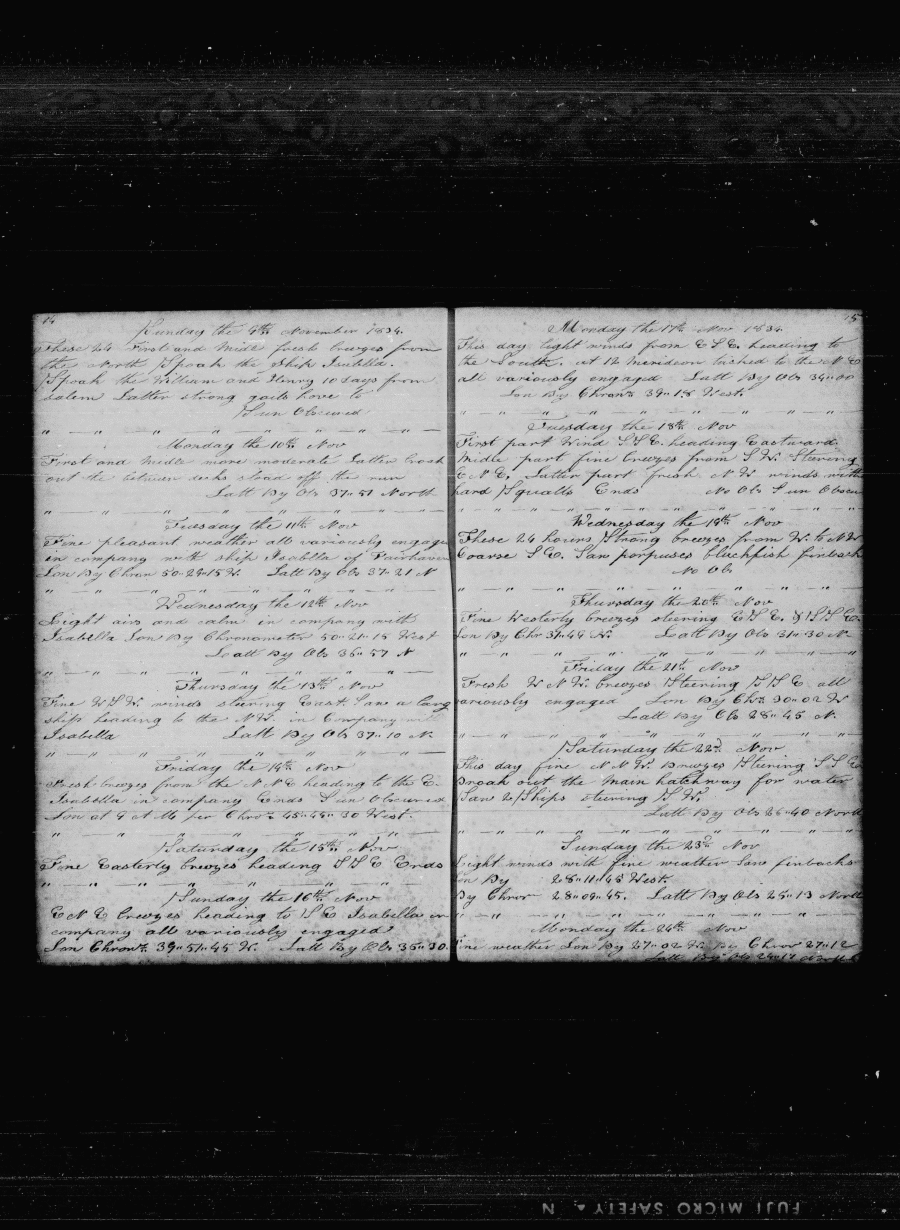 14
Sunday the 9th November 1834.
These 24 First and Midle fresh breezes from
the North Spoak the Ship Isabella.
Spoak the William and Henry 10 days from
Salem Latter strong gails hove to
Sun Obscured
Monday the 10th Nov
First and Midle more moderate Latter broak
out the between decks stoad off the rum
Latt By Obs 37-51 North
Tuesday the 11th Nov
Fine pleasant weather all variously engage
in company with ship Isabella of Fairhaven
Lon By Chron 50-29-15 W. Latt By Obs 37-21 N
Wednesday the 12th Nov
Light airs and calm in company with
Isabella Lon By Chronometer 50-21-15 West
Latt By Obs 36-57 N
Thursday the 13th Nov
Fine WSW. winds steering East. Saw a larg
ship heading to the NW. in Company with
Isabella Latt By Obs 37-10 N.
Friday the 14th Nov
Fresh breezes from the N N E heading to the E.
Isabella in company Ends Sun Obscured
Lon at 9 A M per Chron 45-45-30 West.
Saturday the 15th Nov
Fine Easterly breezes heading S S E Ends
Sunday the 16th Nov
E N E breezes heading to S E Isabella in
company all variously engaged
Lon Chron. 39-51-45 W. Latt By Obs 35-30
15
Monday the 17th Nov 1834.
This day light winds from E S E. heading to
the South. at 12 meridian tacked to the N E
all variously engaged Latt By Obs 34-00
Lon By Chron 39-15 West.
Tuesday the 18th Nov
First part Wind S S E. heading Eastward.
Midle part fine breezes from S W. Steering
E N E. Latter part fresh N W. winds with
hard Squalls Ends No Obs Sun Obscu
Wednesday the 19th Nov
These 24 hours Strong breezes from W. to N W
Coarse S E. Saw porpuses blackfish finback
No Obs
Thursday the 20th Nov
Fine Westerly breezes steering E S E. & S S E.
Lon By Chr 34-44 W. Latt By Obs 31-30 N
Friday the 21st Nov
Fresh W N W. breezes Steering S S E. all
variously engaged Lon By Chr. 30-02 W
Latt By Obs 28-45 N.
Saturday the 22d Nov
This day fine N N W. Breezes Steering S S E
broak out the main hatchway for water
Saw 2 Ships steering S W.
Latt By Obs 26-40 North
Sunday the 23d Nov
Light winds with fine weather Saw finbacks
Lon By 28-11-45 West.
By Chron 28-00-45. Latt By Obs 25-13 North
Monday the 24th Nov
ine weather Lon By 27-02 W. By Chron 27-12
Latt By Obs 24-17 North
FUJI MICRO SAFETY ▲ N